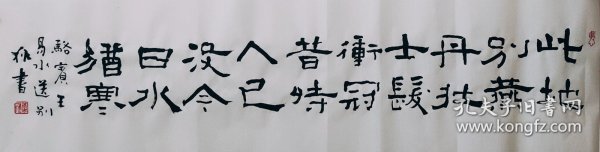 此地
别燕
丹壮
士髮
衝冠
昔時
人已
没今
日水
猶寒
駱賓王
易水送别
書
孔夫子旧书网
www.kongfz.com